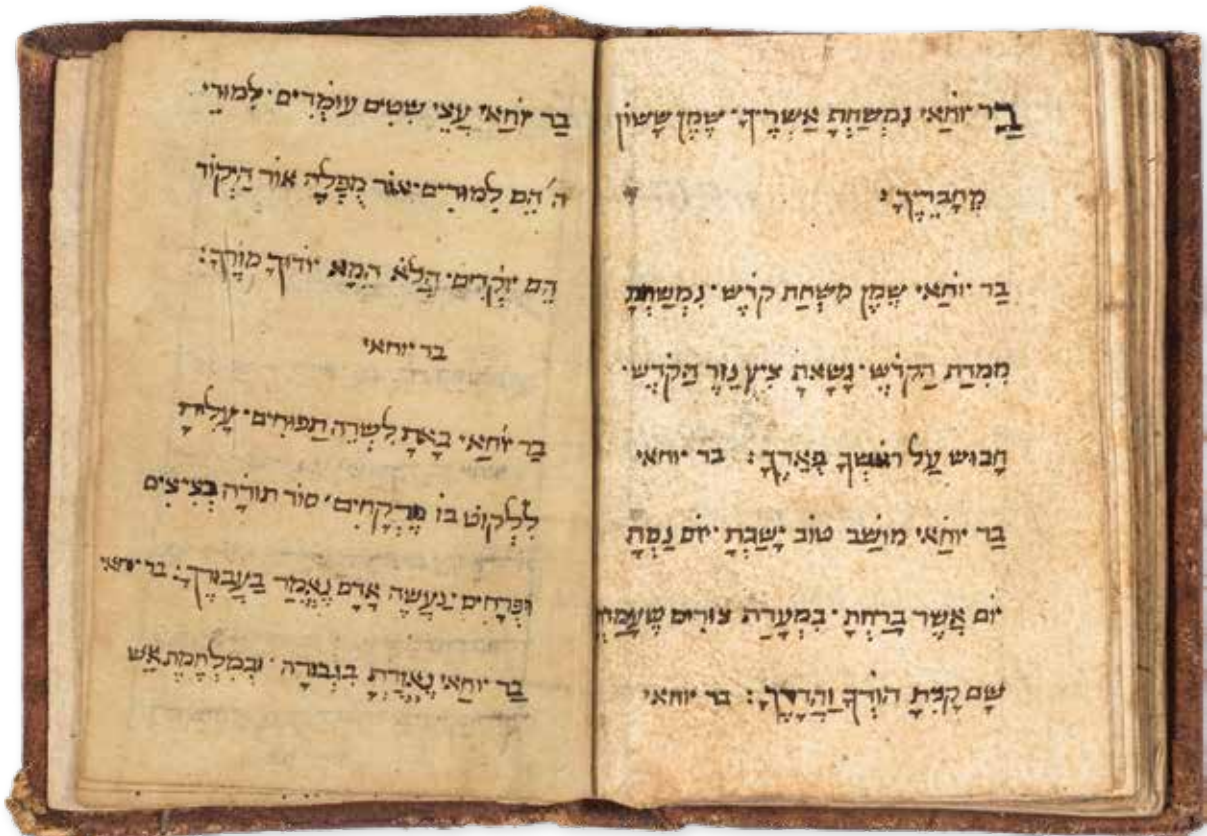 בַּר יוֹחַאי נִמְשַׁחְתָּ אַשְׁרֶיךָ· שֶׁמֶן שָׂשׂוֹן
מְחֲבֵרֶיךָ:
בַּר יוֹחַאי שֶׁמֶן מִשְׁחַת קֹדֶשׁ· נִמְשַׁחְתָּ
מִמִדַת הַקֹדֶשׁ· נָשָׂאתָ צִיץ נֵזֶר הַקֹדֶשׁ·
חָבוּשׁ עַל רֹאשְׁךָ פְּאֵרֶךָ: בר יוחאי
בַּר יוֹחַאי מוֹשַׁב טוֹב יָשַׁבְתָּ· יוֹם נַסְתָּ
יוֹם אֲשֶׁר בָּרַחְתָּ· בִּמְעָרַת צוּרִים שֶׁעָמַדְתָּ
שָׁם קָנִיתָ הוֹדְךָ וַהֲדָרֶךָ: בר יוחאי
בַּר יוֹחַאי עֲצֵי שִׁטִים עוֹמְדִים· לִמּוּדֵי
ה' הֵם לְמוּדִים· אוֹר מֻפְלָה אוֹר הַיְקוֹד
הֵם יוֹקְדִים· הֲלֹא הֵמָא יוֹדוּךָ מוֹרֶךָ:
בר יוחאי
בַּר יוֹחַאי בָּאתָ לִשְׂדֵה תַפּוּחִים· עָלִיתָ
לִלְקוֹט בּוֹ מֶרְקָחִים· סוֹד תּוֹרָה בְּצִיצִים
וּפְרָחִים· נַעֲשֶׂה אָדָם נֶאֱמַר בַּעֲבוּרֶךָ: בר יוחאי
בַּר יוֹחַאי נֶאֱזַרְתָּ בִּגְבוּרָה· וּבְמִלְחֶמֶת אֵשׁ